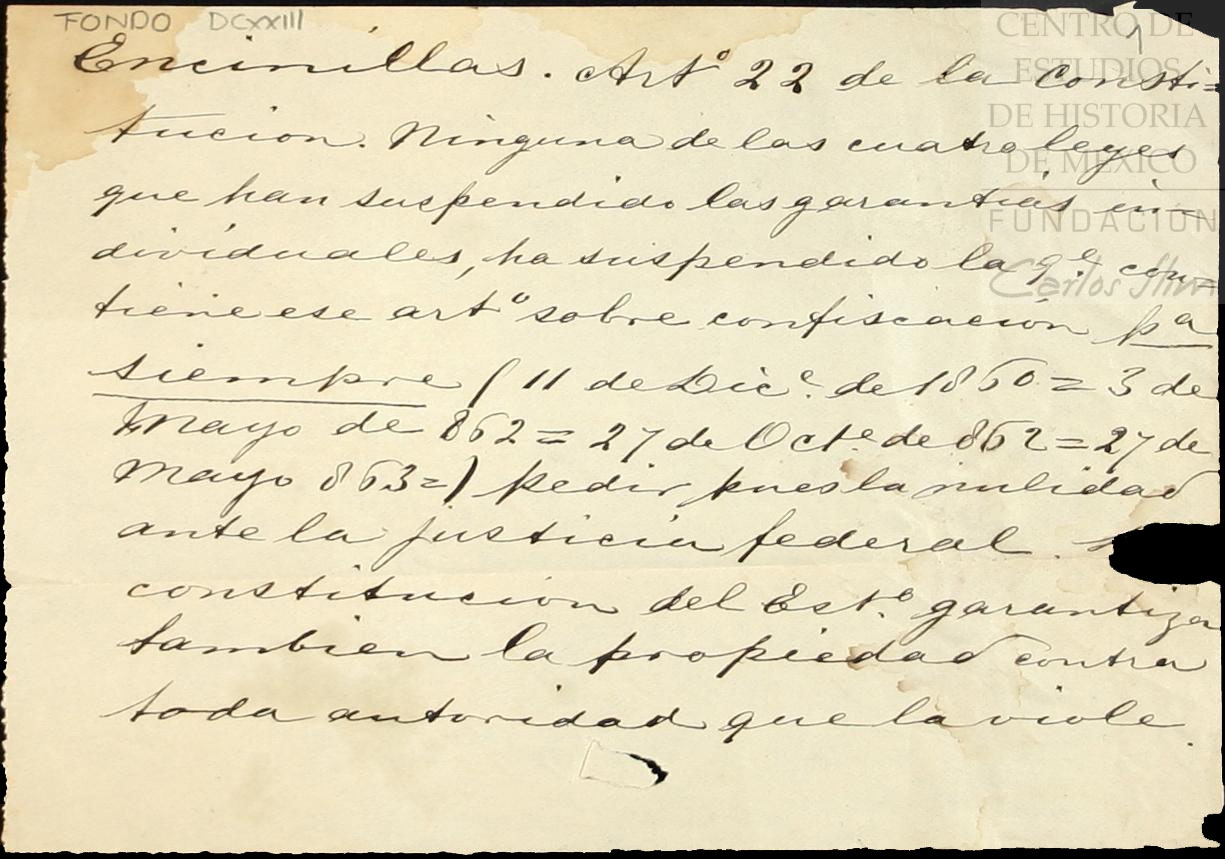 FONDO DCXXIII
CENTRO DE
ESTUDIOS
DE HISTORIA
DE MEXICO
FUNDACION
Carlos Slim
1
Encinillas. Artº 22 de la consti=
tucion. Ninguna de las cuatro leyes
que han suspendido las garantias in-
dividuales, ha suspendido la qe. con=
tiene ese artº sobre confiscacion pa
siempre (11 de Dice. de 1860 = 3 de
Mayo de 862 = 27 de Octe. de 862 = 27 de
Mayo 863 =) pedir, pues la nulidad
ante la justicia federal.
constitucion del Esto. garantiza
tambien la propiedad contra
toda autoridad que la viole.